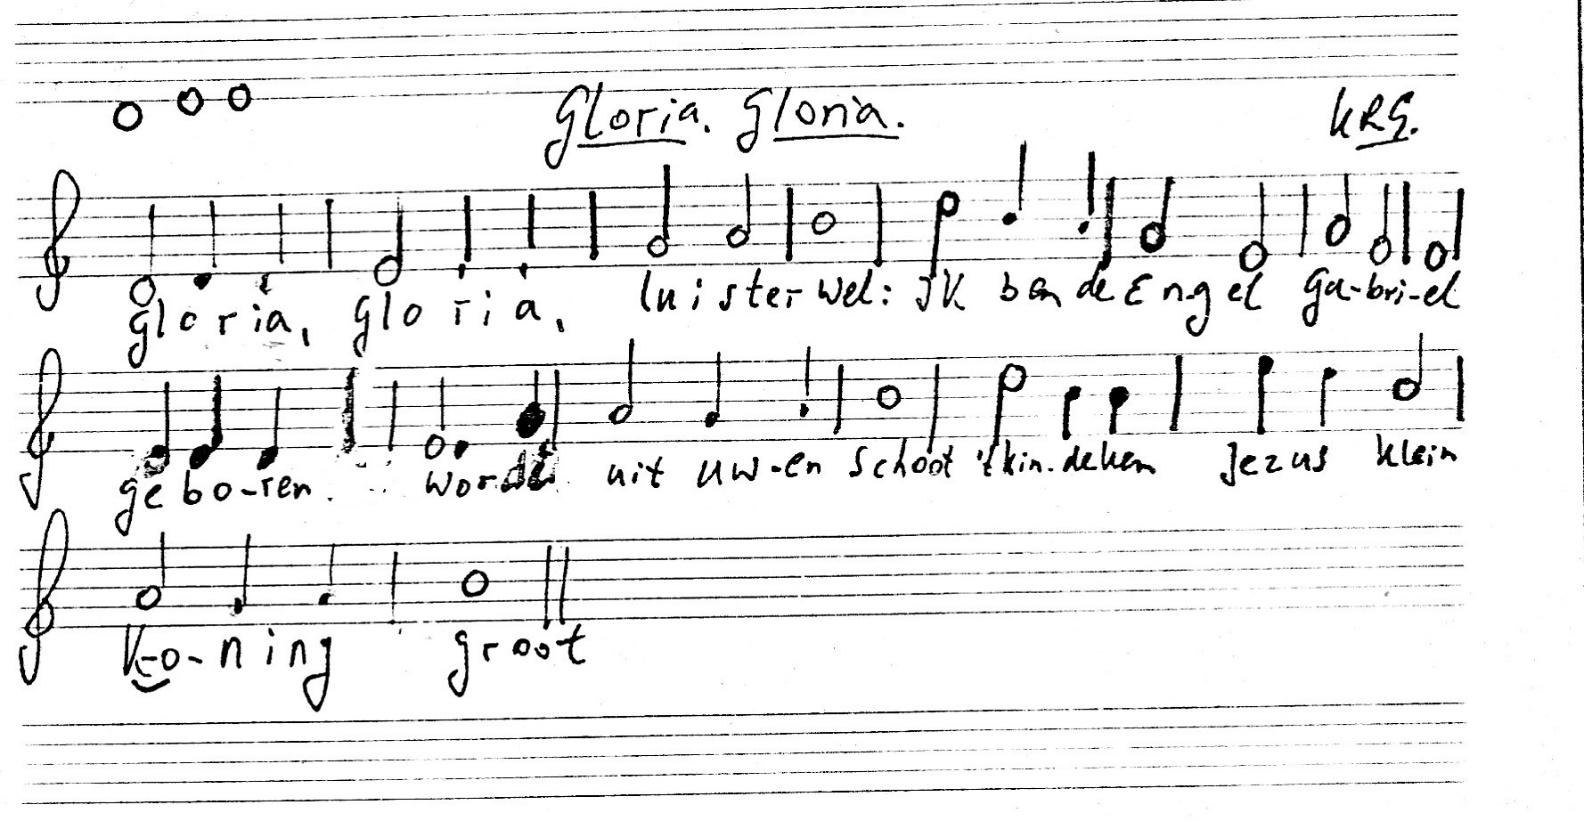 Gloria. Gloria.
KRG.
gloria, gloria, luister wel: ik ben de Engel Ga-bri-el
ge bo-ren. worde uit uw-en schoot 't kin-deken Jezus klein
K-o-ning groot